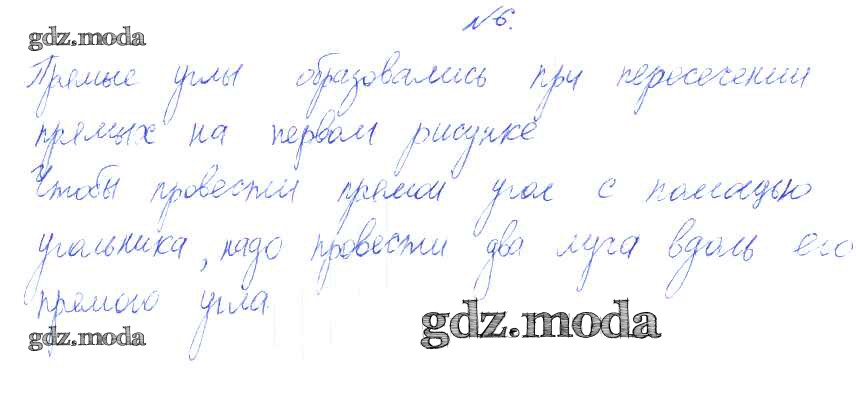 №6.
gdz.moda
Прямые углы образовались при пересечении
прямых на первом рисунке
Чтобы провести прямой угол с помощью
угольника, надо провести два луча вдоль его
прямого угла
gdz.moda
gdz.moda